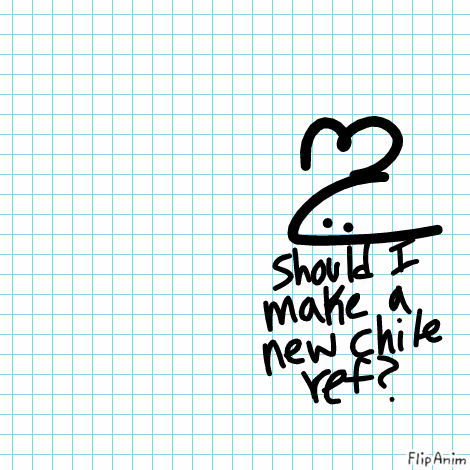 should I
make a
new chile
ref?
FlipAnim